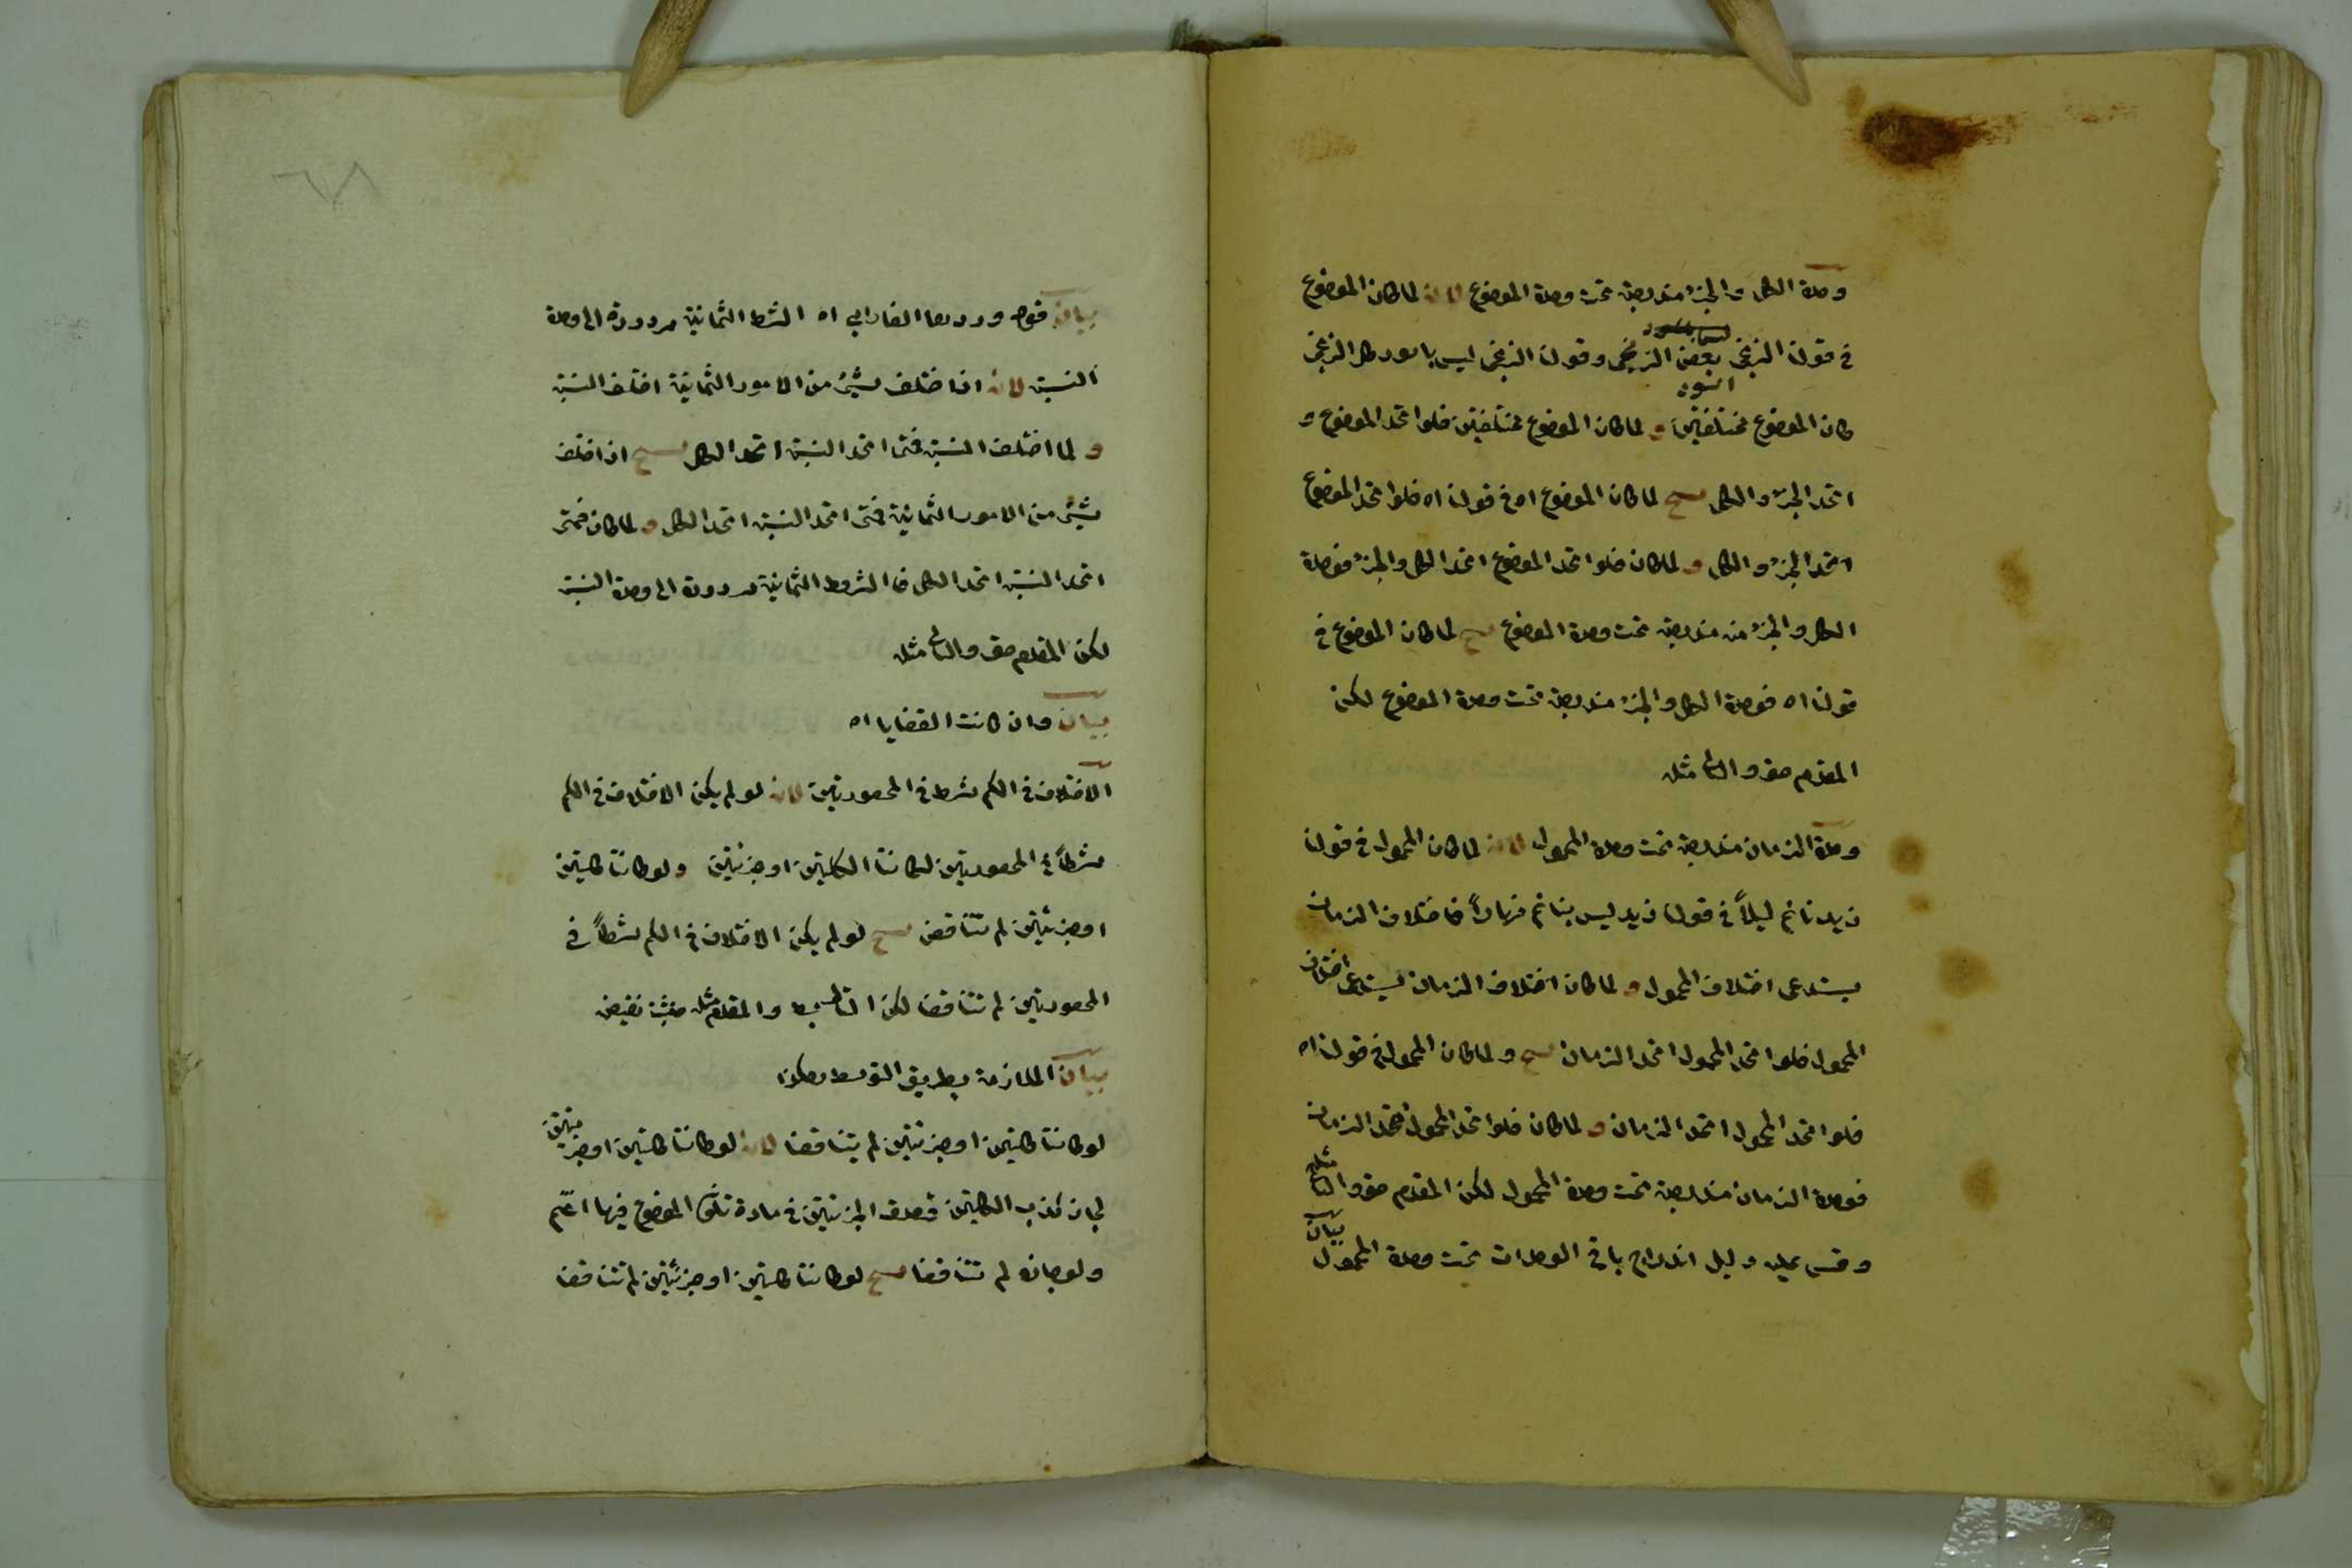 وحدة الكل والجزء مندرجة تحت وحدة الموضوع لانه لما كان الموضوع
في قولنا الزنجي بعض الزنجي وقولنا الزنجي ليس باسود كل الزنجي
اسود
كان الموضوع مختلفين و لما كان الموضوع مختلفين فلو اتحد الموضوع و
اتحد الجزء والكل صح لما كان الموضوع اه في قولنا اه فلو اتحد الموضوع
اتحد الجزء والكل و لما كان فلو اتحد الموضوع اتحد الكل والجزء فوحدة
الكل والجزء مندرجة تحت وحدة الموضوع صح لما كان الموضوع في
قولنا اه فوحدة الكل والجزء مندرجة تحت وحدة الموضوع لكن
المقدم حق والتالي مثله
وحدة الزمان مندرجة تحت وحدة المحمول لانه لما كان المحمول في قولنا
زيد نائم ليلاً في قولنا زيد ليس بنائم نهاراً فاختلاف الزمان
يستدعي اختلاف المحمول و لما كان اختلاف الزمان يستدعي اختلاف
المحمول فلو اتحد المحمول اتحد الزمان صح و لما كان المحمول في قولنا اه
فلو اتحد المحمول اتحد الزمان و لما كان فلو اتحد المحمول اتحد الزمان
فوحدة الزمان مندرجة تحت وحدة المحمول لكن المقدم حق والتالي مثله
وقس عليه دليل اندراج باقي الوحدات تحت وحدة المحمول بيان
٦٨
بيان قوله وردها الفارابي اه الشرط الثمانية مردودة الى وحدة
النسبة لانه اذا اختلف شيء من الامور الثمانية اختلف النسبة
و لما اختلف النسبة فمتى اتحد النسبة اتحد الكل صح اذا اختلف
شيء من الامور الثمانية فمتى اتحد النسبة اتحد الكل و لما كان فمتى
اتحد النسبة اتحد الكل فالشروط الثمانية مردودة الى وحدة النسبة
لكن المقدم حق والتالي مثله
بيان وان كانت القضايا اه
الاختلاف في الكم شرط في المحصورتين لانه لو لم يكن الاختلاف في الكم
شرطاً في المحصورتين لكانتا الكليتين او جزئيتين ولو كانتا كليتين
او جزئيتين لم تتناقض صح لو لم يكن الاختلاف في الكم شرطاً في
المحصورتين لم تتناقضا لكن التالي بط والمقدم مثله فيثبت نقيض
بيان الملازمة بطريق التوسط هكذا
لو كانتا كليتين او جزئيتين لم يتناقضا لانه لو كانتا كليتين او جزئيتين
لجاز كذب الكليتين وصدق الجزئيتين في مادة تكون الموضوع فيها اعم
ولو جاز لم تتناقضا صح لو كانتا كليتين او جزئيتين لم تتناقضا